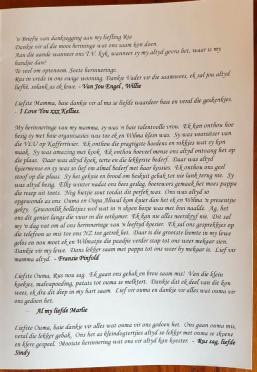 'n Briefie van danksegging aan my liefling Ria
Dankie vir al die mooi herinnge wat ons saam kon doen.
Aan die aande wanneer ons T.V. kyk, wanneer sy my altyd geovra het, waar is my
handjie dan?
Te veel om optenoem. Soete herinneringe.
Rus in vrede in ons ewige woning. Dankie Vader vir die saamwees, ek sal jou altyd
liefhê, solank as ek lewe. - Van Jou Engel, Willie
Liefste Mamma, baie dankie vir al ma se liefde waardeur baie en veral die geskenkies.
- I Love You xxx Kellies.
My herinneringe van my mamma, sy was 'n baie talentvolle vrou. Ek kan onthou hoe
besig sy met baie organisasies was toe ek en Wilma klein was. Sy was voorsitter van
die VLU op Kaffirrivier. Ek onthou die pragtigste hoedens en rokkies wat sy kon
maak. Sy was amazing met kosk. Ek onthou hoeveel mense ons altyd ontvang het op
die plaas. Daar was altyd koek, terte en die lekkerste bedorf. Daar was altyd
kuiermense en sy was so lief om almal bederf met haar kosies. Ek onthou ons ged
stoof op die plaas. Sy het gekook en brood en beskuit gebak tot die laat treng nie. Sy
was altyd besig. Elke winter vaslae ons bees geslag, boerewors gemaak het moes pappie
die reep uit toets. Nog bietjie sout totdat dit perfek was. Ons was altyd so
opgewonde as ons Ouma en Oupa Misaal kom kuier dan het ek en Wilma 'n presentjie
gekry. Gewoonlik bolletjies wol wat in 'n skoen besie was met bees naalde. Ag het
ons dit geniet langs die vuur in die eetkamer. Ek kan nie alles neerskryf nie. Dit sal
my 'n dag vat om al ons herinneringe van 'n leeftyd hoeveer. Ek sal ons gesprekkies op
die telefoon as mis toe ons NZ toe getrek het. Daar is die grootste leemte in my lewe
gelos en nou moet ek en Wilmatjie die paadjie verder stap tot ons weer mekaar sien.
Dankie vir my lewe. Dans lekker saam met pappa tot ons weer by mekaar is. Lief vir
mamma altyd. - Fransie Pinfold
Liefste Ouma, Rus nou sag. Ek gaan ons gebak en bree saam mis! Van die klein
koekies, malvapoeding, patats tot ouma se melktert. Dankie dat ek deel van dit kon
wees, ek dra dit diep in my hart saam. Lief vir ouma en dankie vir alles wat ouma vir
ons gedoen het.
- Al my liefde Marlie
Liefste Ouma, baie dankie vir alles wat ouma vir ons gedoen het. Ons gaan ouma mis,
veral die lekker gebak. Ons het as kleindogtertjies altyd so lekker met ouma se skoene
en klere gespeel. Mooiste herinnering wat ons vir altyd kan koester. - Rus sag, liefde
Sindy